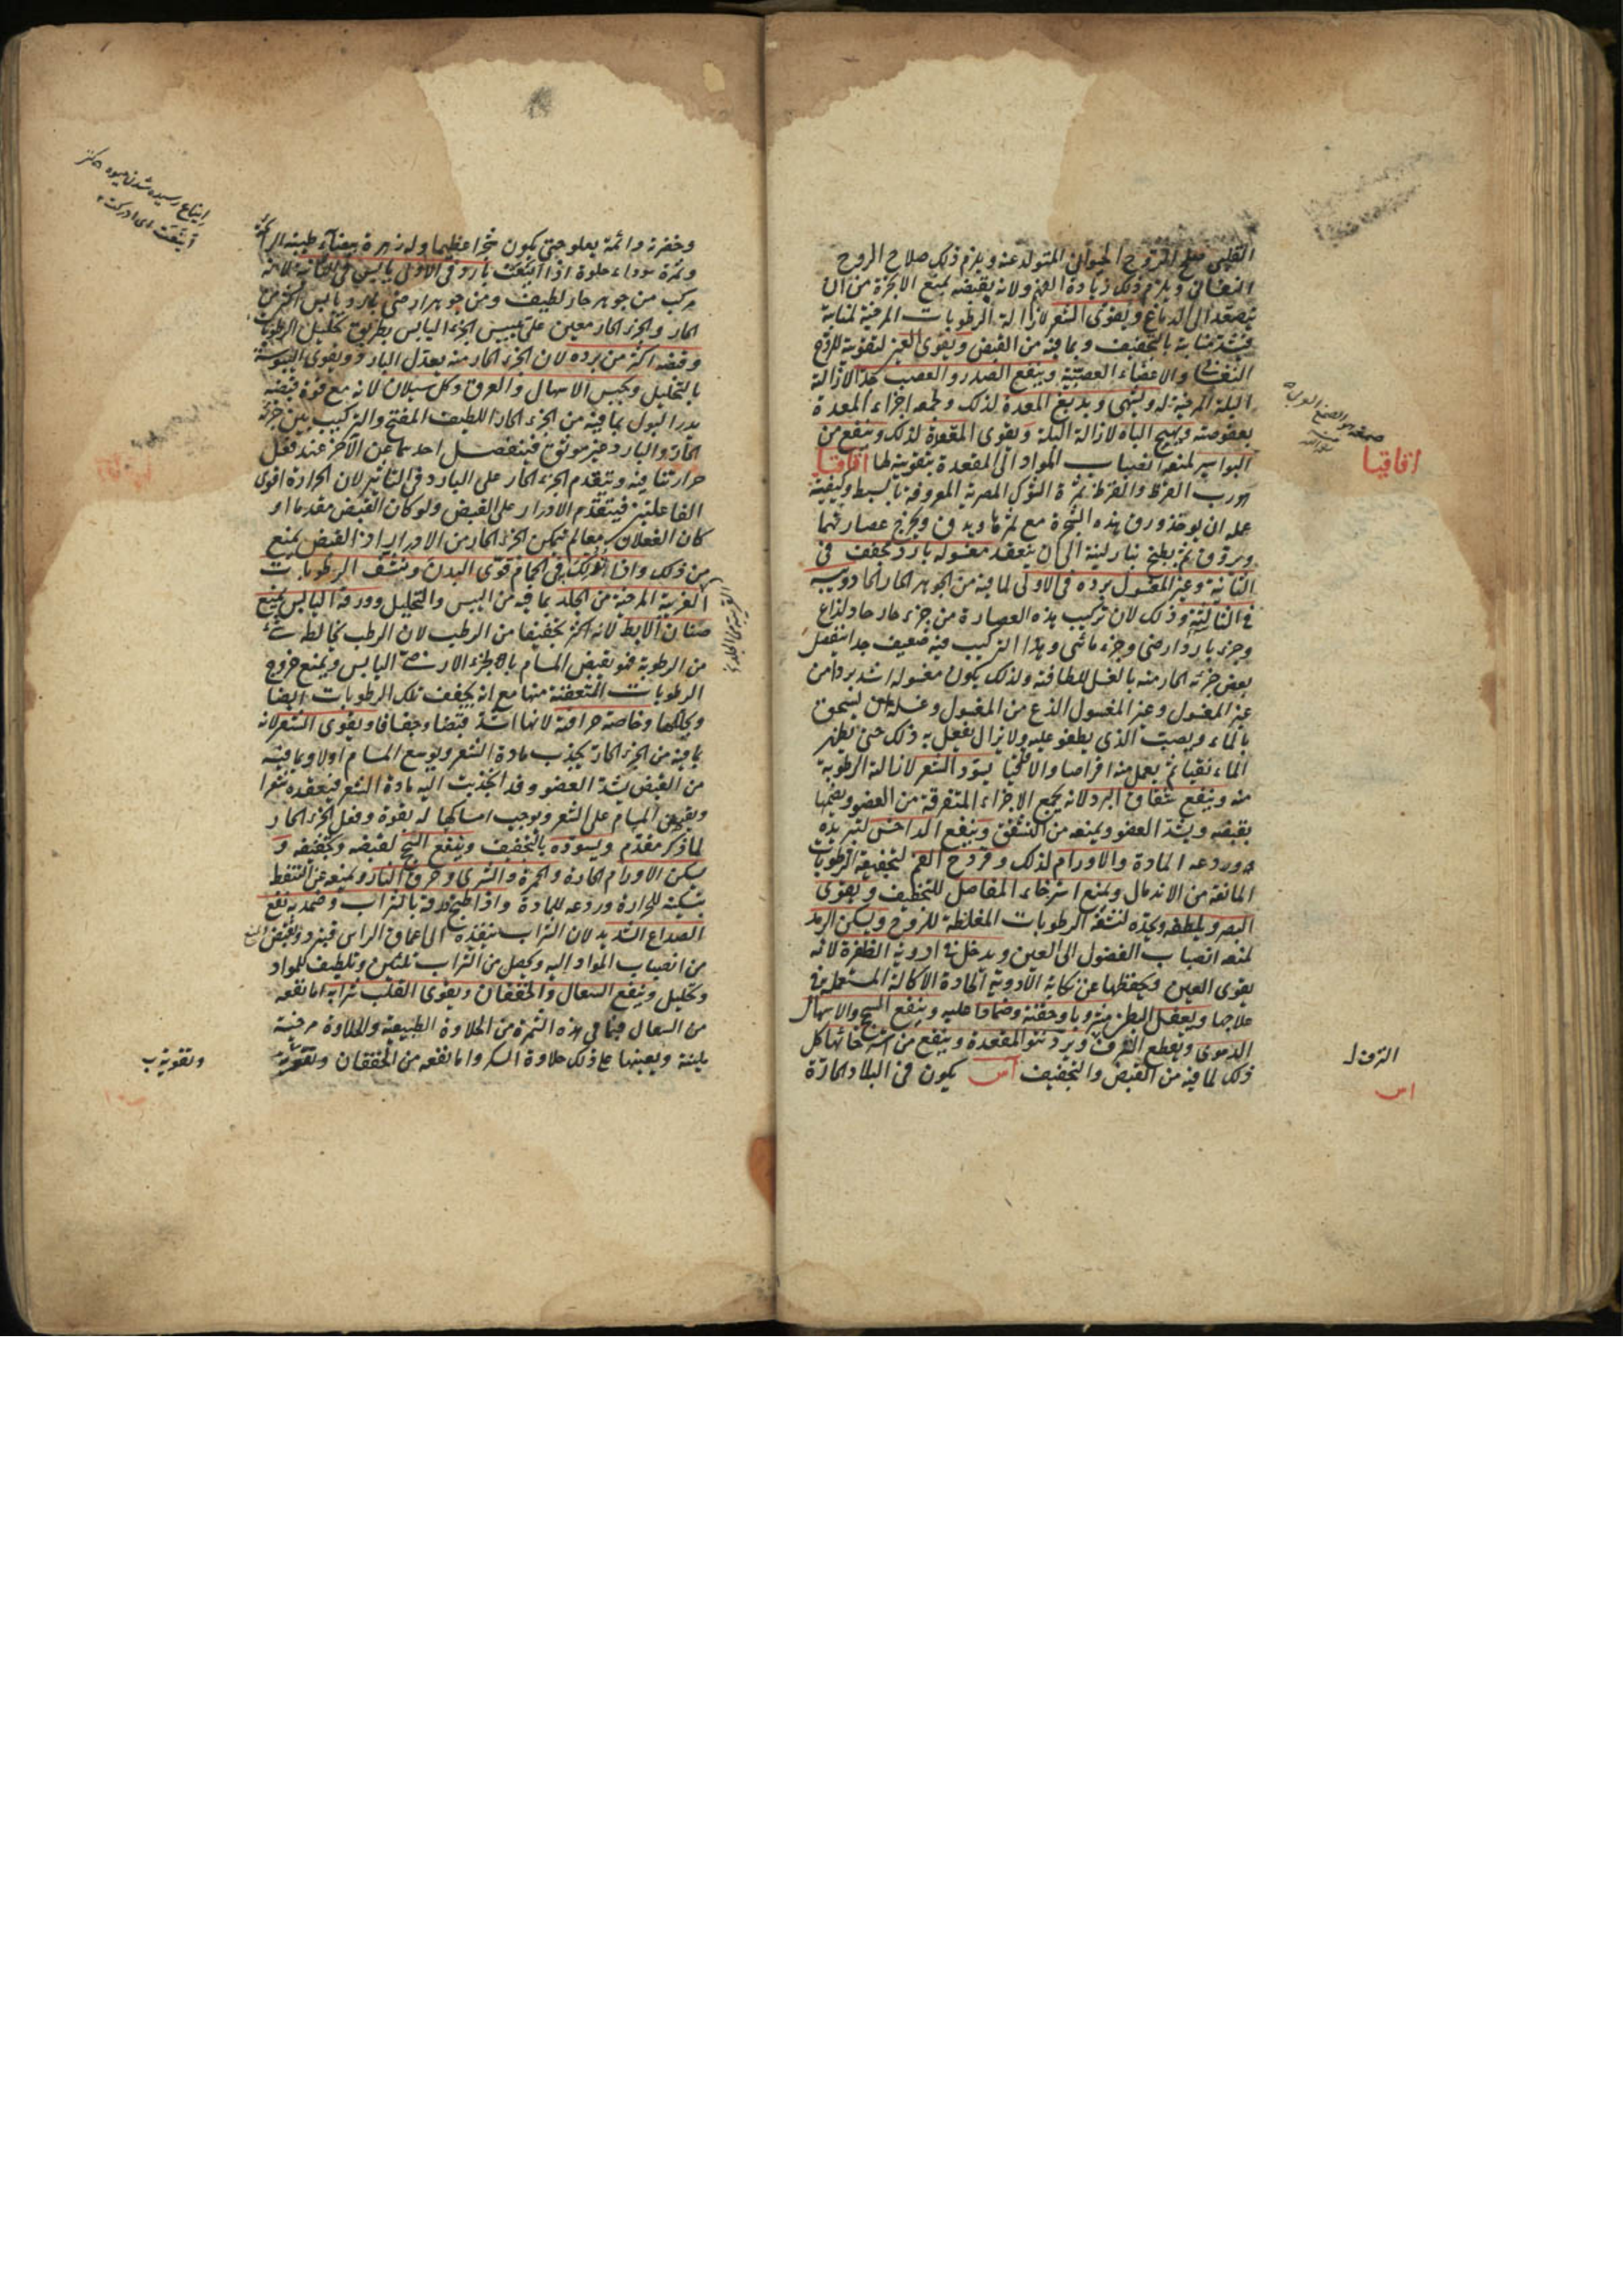 القلب صلح الروح الحيواني المتولد عنه ويلزم ذلك صلاح الروح
النفساني ويلزم ذلك زيادة الفهم ولانه بقبضه يمنع الابخرة من ان
يتصعد الى الدماغ ويقوى الشعر لازالة الرطوبات المرخية لمنابته
فيشد منابته بالتجفيف وبما فيه من القبض ويقوى العين لتقويته للروح
النفساني والاعضاء العصبية وينفع الصدر والعصب جدا لازالة
البلة المرخية له ويشهى ويدبغ المعدة لذلك وجمعه اجزاء المعدة
بعفوصته ويهيج الباه لازالة البلة ويقوى المقعدة لذلك وينفع من
البواسير لمنعه انصباب المواد الى المقعدة بتقويته لها اقاقيا
هو رب القرظ والقرظ ثمرة الشوك المصرية المعروفة بالسنط وكيفية
عمله ان يوخذ ورق هذه الشجرة مع ثمرها ويدق ويخرج عصارتهما
ويروق ثم يطبخ بنار لينة الى ان ينعقد مغسوله بارد مجفف فى
الثانية وغير المغسول برده فى الاولى لما فيه من الجوهر الحار الحاد ويبسه
فى الثالثة وذلك لان تركيب هذه العصارة من جزء حار حاد لذاع
وجزء بارد ارضى وجزء مائى وهذا التركيب فيه ضعيف جدا ينفصل
بعض جزئه الحار منه بالغسل للطافته ولذلك يكون مغسوله اشد بردا من
غير المغسول وغير المغسول الذع من المغسول وغسله ان يسحق
بالماء ويصب الذى يطفو عليه ولا يزال يفعل به ذلك حتى يظهر
الماء نقيا ثم يعمل منه اقراصا والاقاقيا يسود الشعر لازالة الرطوبة
منه وينفع شقاق البرد لانه يجمع الاجزاء المتفرقة من العضو ويضمها
بقبضه ويشد العضو ويمنعه من التشقق وينفع الداحس لتبريده
وردعه المادة والاورام لذلك وقروح الفم لتجفيفه الرطوبات
المانعة من الاندمال ويمنع استرخاء المفاصل للتجفيف ويقوى
البصر ويلطفه ويحده لنشفه الرطوبات المغلظة للروح ويسكن الرمد
لمنعه انصباب الفضول الى العين ويدخل فى ادوية الظفرة لانه
يقوى العين ويحفظها عن نكاية الادوية الحادة الاكالة المستعملة فى
علاجها ويعقل البطن مشروبا وحقنة وضمادا عليه وينفع السحج والاسهال
الدموى ويقطع النزف ويرد نتو المقعدة وينفع من استرخائها كل
ذلك لما فيه من القبض والتجفيف آس يكون فى البلاد الحارة
اقاقيا
النزف ل
اس
وخضرته دائمة يعلو حتى يكون شجرا عظيما وله زهرة بيضاء طيبة الرائحة
وثمرة سوداء حلوة اذا اينعت بارد فى الاولى يابس فى الثانية لانه
مركب من جوهر حار لطيف ومن جوهر ارضى بارد يابس اكثر من
الحار والجزء الحار معين على تيبيس الجزء اليابس بطريق تحليل الرطوبات
وقبضه اكثر من برده لان الجزء الحار منه يعدل البارد ويقوى اليبوسة
بالتحليل ويحبس الاسهال والعرق وكل سيلان لانه مع قوة قبضه
يدر البول بما فيه من الجزء الحار اللطيف المفتح والتركيب بين جزئه
الحار والبارد غير موثق فينفصل احدهما عن الآخر عند فعل
حرارتنا فيه ويتقدم الجزء الحار على البارد فى التاثير لان الحرارة اقوى
الفاعلتين فيتقدم الادرار على القبض ولو كان القبض مقدما او
كان الفعلان معا لم يمكن الجزء الحار من الادرار اذ القبض يمنع
من ذلك واذا تدلك فى الحمام قوى البدن ونشف الرطوبات
الغريبة المرخية من الجلد بما فيه من اليبس والتحليل وورقه اليابس يمنع
صنان الابط لانه اكثر تجفيفا من الرطب لان الرطب يخالطه شئ
من الرطوبة فهو يقبض المسام بالجزء الارضى اليابس ويمنع خروج
الرطوبات المتعفنة منها مع انه يجفف تلك الرطوبات ايضا
ويحللها وخاصة حراقته لانها اشد قبضا وجفافا ويقوى الشعر لانه
بما فيه من الجزء الحار يجذب مادة الشعر ويوسع المسام اولا وبما فيه
من القبض يشد العضو وقد انجذبت اليه مادة الشعر فيعقده شعرا
ويقبض المسام على الشعر ويوجب امساكها له بقوة وفعل الجزء الحار
لما ذكر مقدم ويسوده بالتجفيف وينفع السحج لقبضه وتجفيفه و
يسكن الاورام الحارة والحمرة والشرى وحرق النار ويمنعه عن التنفط
بتسكينه للحرارة وردعه للمادة واذا طبخ ورقه بالشراب وضمد به نفع
الصداع الشديد لان الشراب ينفذه الى اعماق الراس فيبرد ويقبض ويمنع
من انصباب المواد اليه ويحصل من الشراب تسخين وتلطيف للمواد
وتحليل وينفع السعال والخفقان ويقوى القلب شرابه اما نفعه
من السعال فبما فى هذه الثمرة من الحلاوة الطبيعية والحلاوة مرخية
ملينة ويعينها على ذلك حلاوة السكر واما نفعه من الخفقان وتقويته
ايناع رسيده شدن ميوه
اينعت اى ادركت
وتقويته ب